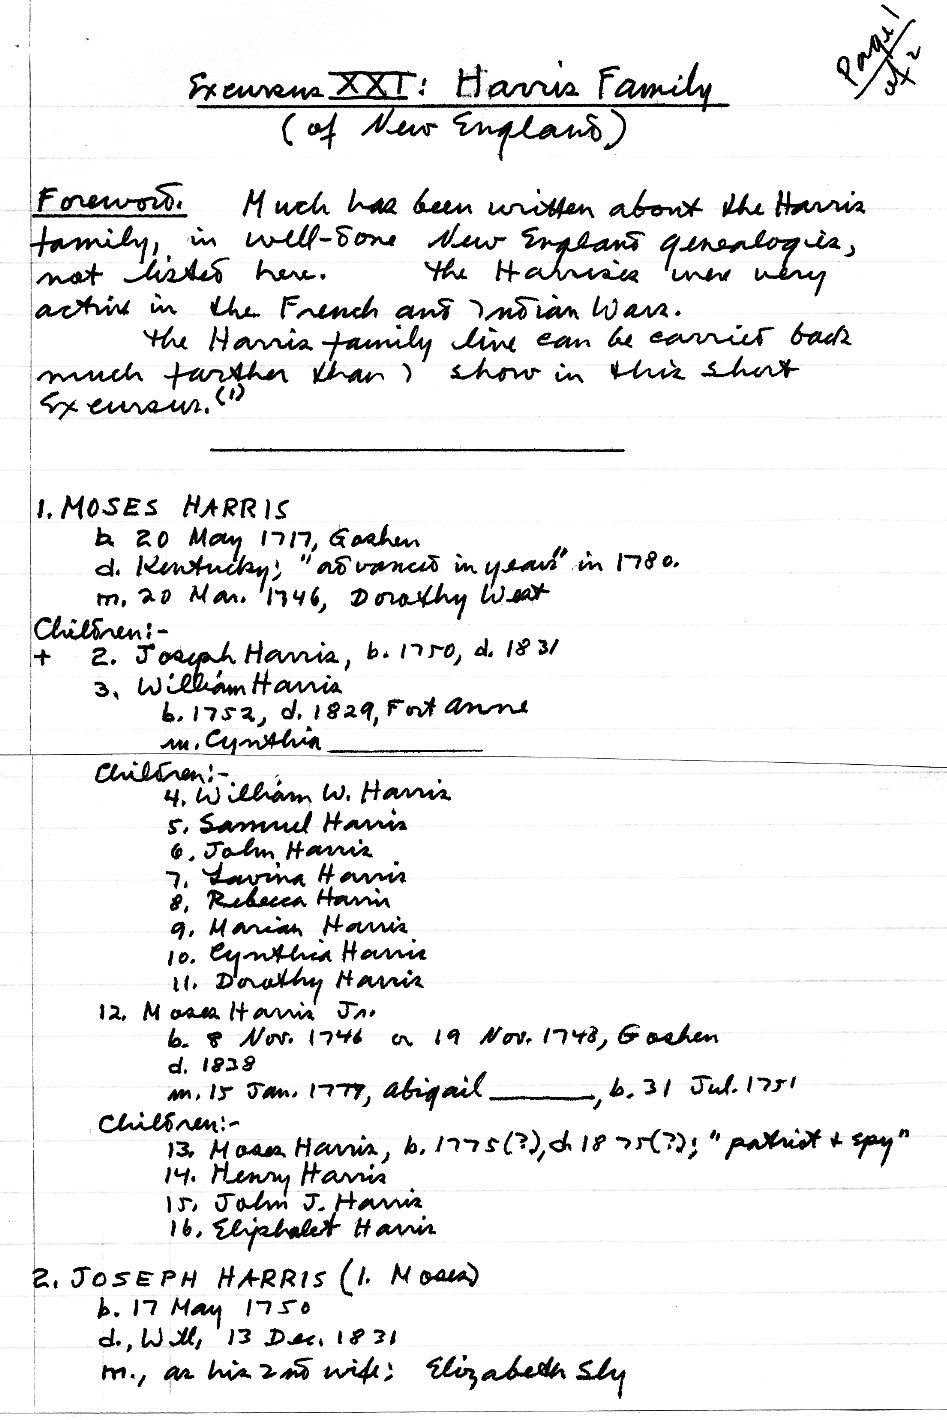 Page 1
of 2
Excursus XXI: Harris Family
(of New England)
Foreword. Much has been written about the Harris
family, in well-done New England genealogies,
not listed here. The Harrises were very
active in the French and Indian Wars.
The Harris family line can be carried back
much farther than I show in this short
Excursus.(1)
1. MOSES HARRIS
b. 20 May 1717, Goshen
d. Kentucky; "advanced in years" in 1780.
m. 20 Mar. 1746, Dorothy West
Children:-
+ 2. Joseph Harris, b. 1750, d. 1831
3. William Harris
b. 1752, d. 1829, Fort Anne
m. Cynthia ________
Children:-
4. William W. Harris
5. Samuel Harris
6. John Harris
7. Lavina Harris
8. Rebecca Harris
9. Marian Harris
10. Cynthia Harris
11. Dorothy Harris
12. Moses Harris Jr.
b. 8 Nov. 1746 or 19 Nov. 1748, Goshen
d. 1838
m. 15 Jan. 1777, Abigail ________, b. 31 Jul. 1751
Children:-
13. Moses Harris, b. 1775(?), d. 1875(?); "patriot + spy"
14. Henry Harris
15. John J. Harris
16. Eliphalet Harris
2. JOSEPH HARRIS (1. Moses)
b. 17 May 1750
d., Will, 13 Dec. 1831
m., as his 2nd wife: Elizabeth Sly